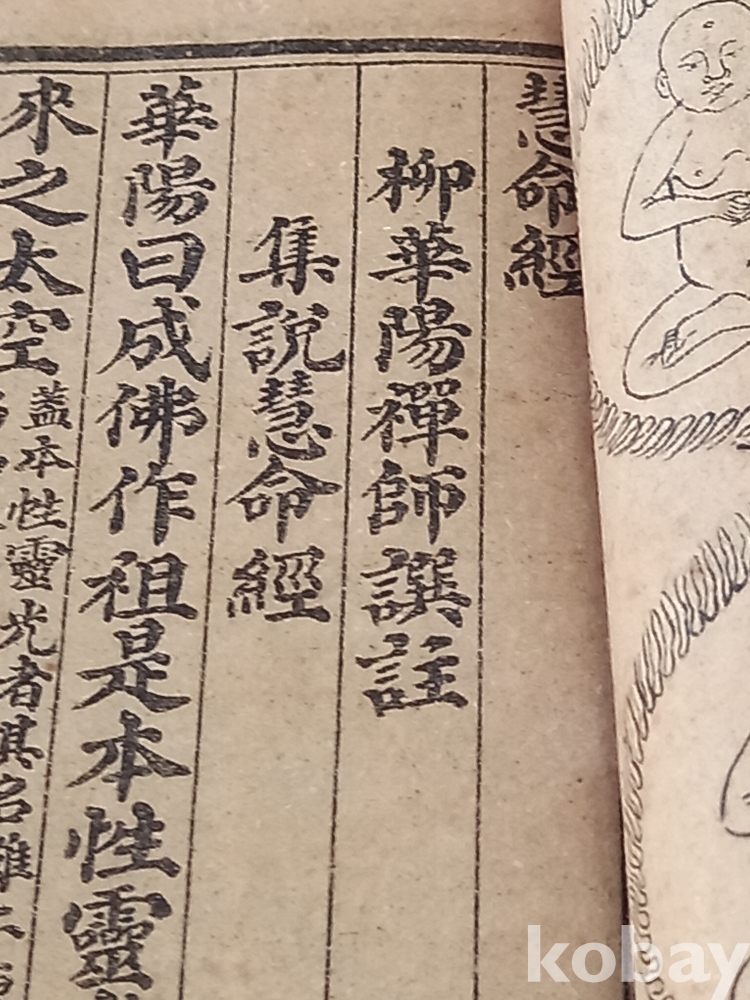 慧命經
柳華陽禪師譔註
集說慧命經
華陽曰成佛作祖是本性靈
來之太空
蓋本性靈光者其名雖
kobay